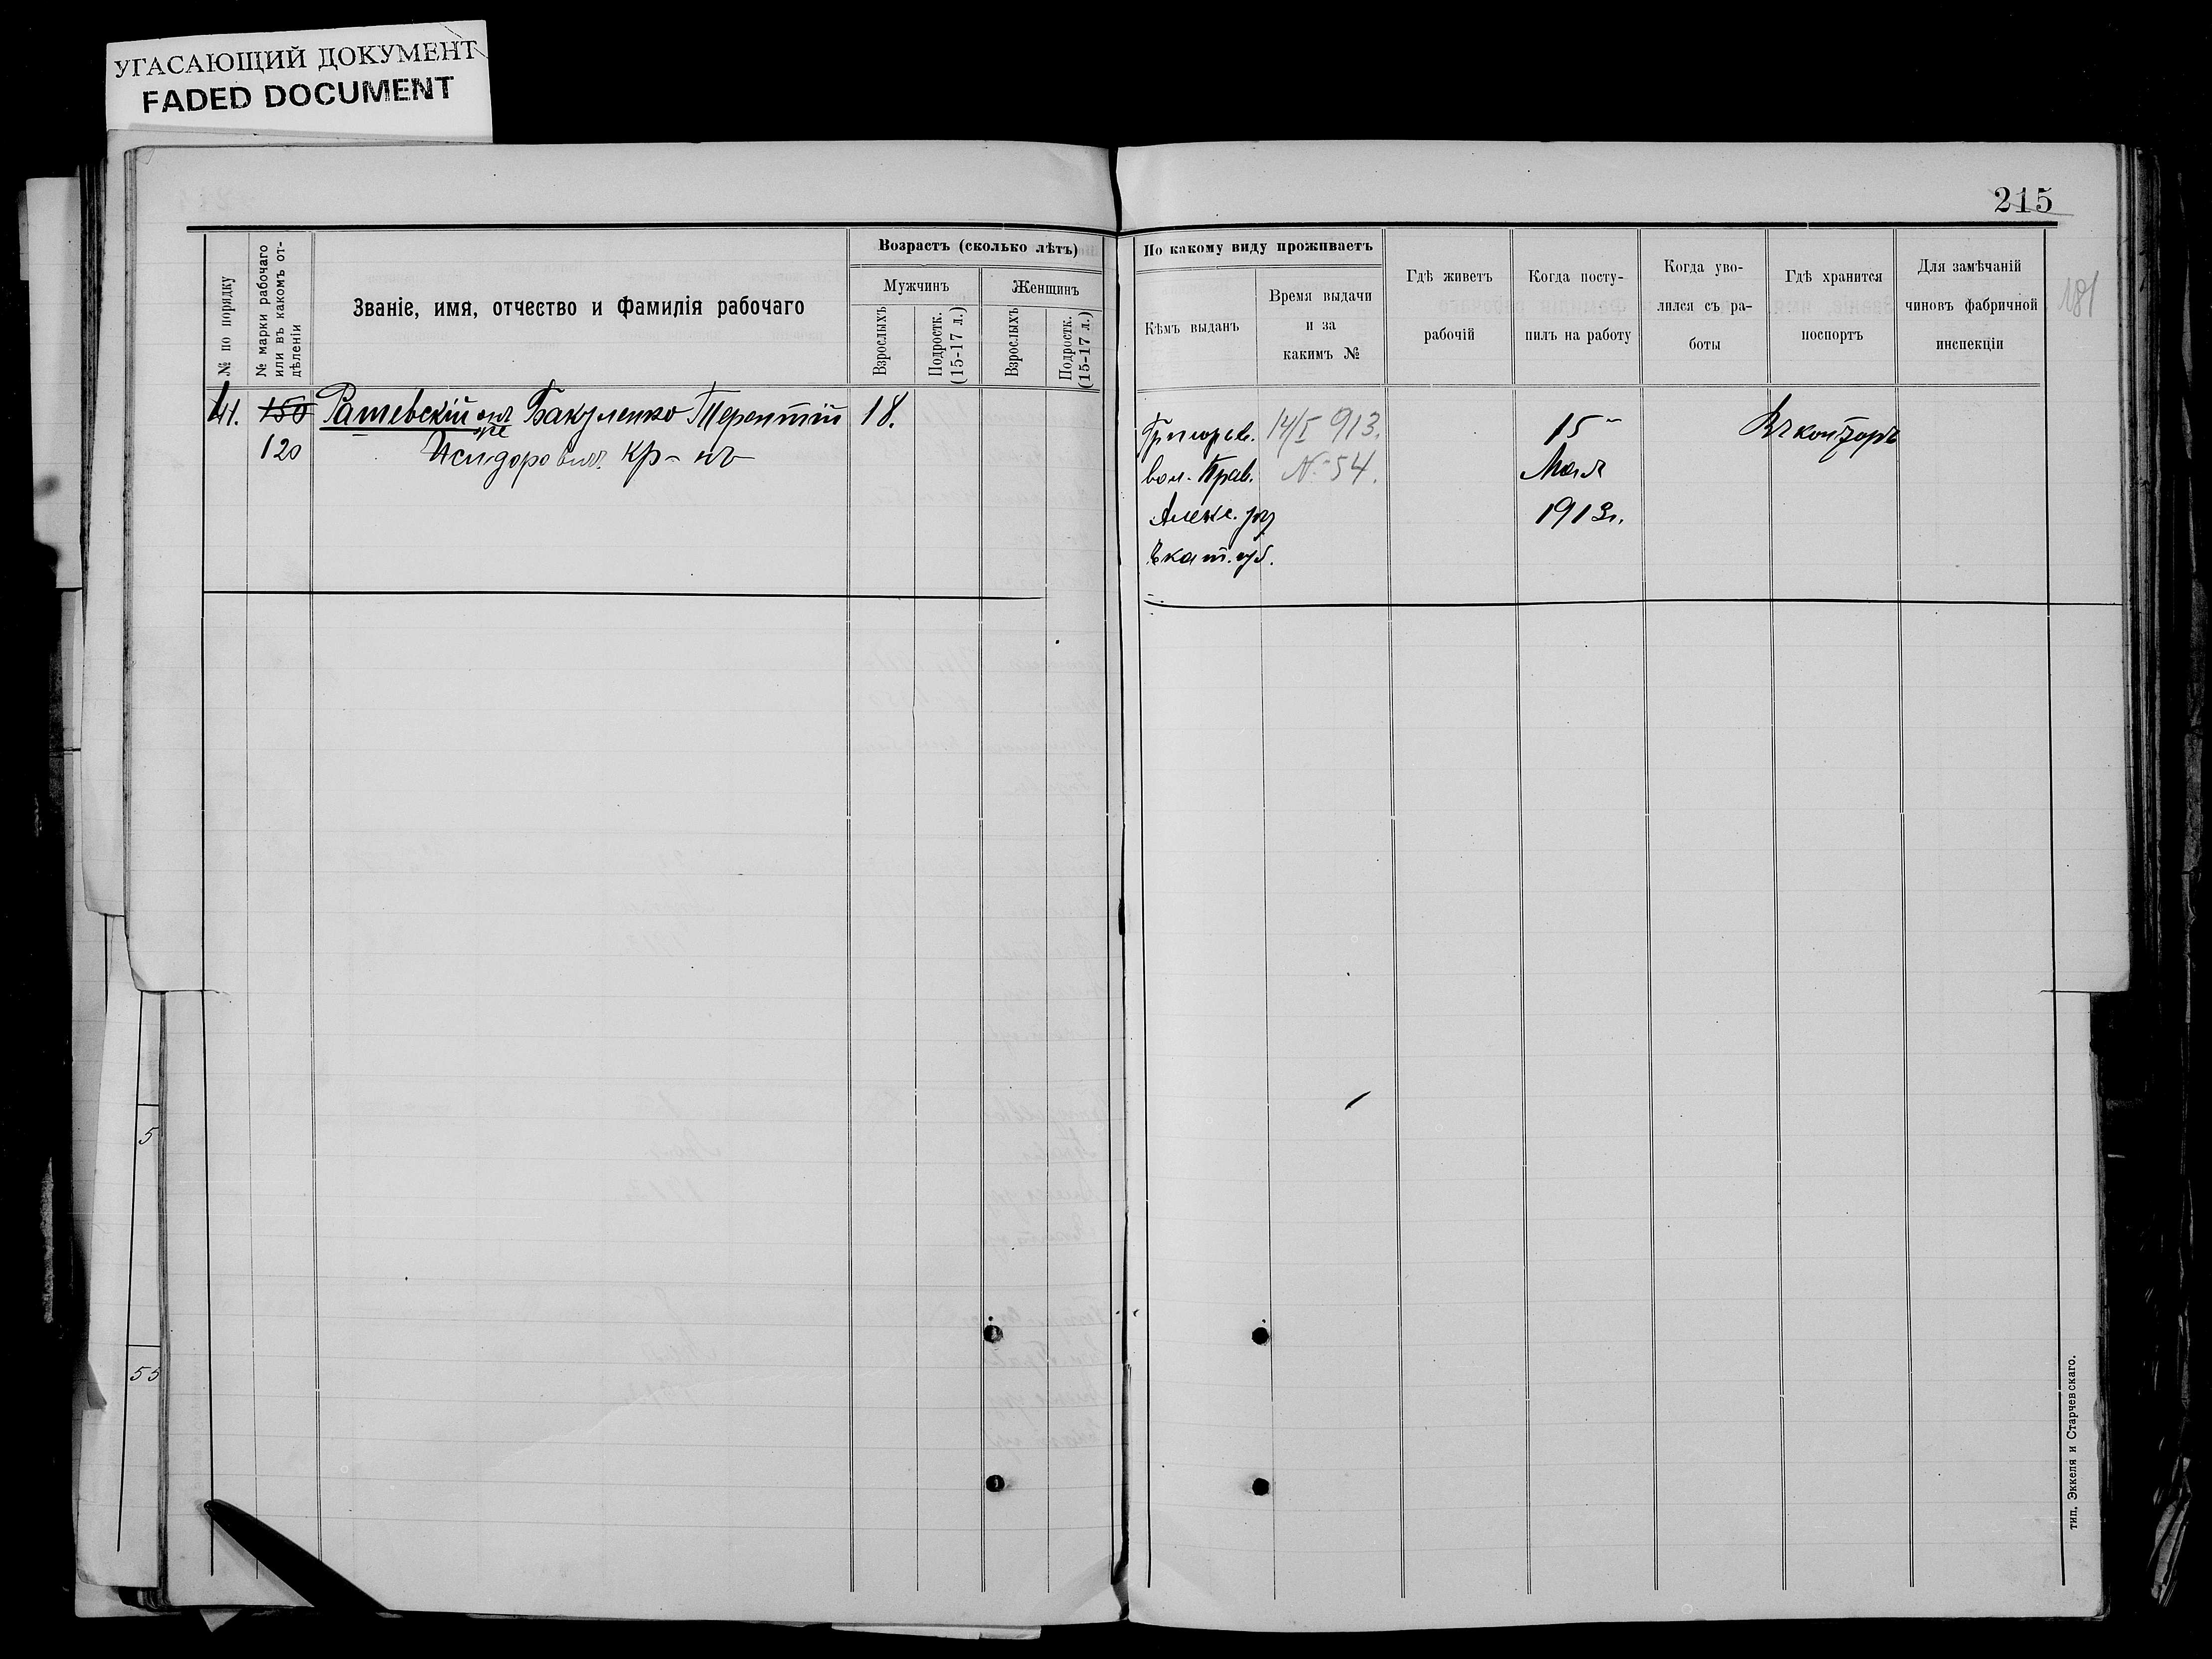 УГАСАЮЩИЙ ДОКУМЕНТ
FADED DOCUMENT
215
181
№ по порядку
№ марки рабочаго
или въ какомъ от-
дѣленіи
Званіе, имя, отчество и фамилія рабочаго
Возрастъ (сколько лѣтъ)
Мужчинъ
Женщинъ
Взрослыхъ
Подростк.
(15-17 л.)
Взрослыхъ
Подростк.
(15-17 л.)
По какому виду проживаетъ
Кѣмъ выданъ
Время выдачи
и за
какимъ №
Гдѣ живетъ
рабочій
Когда посту-
пилъ на работу
Когда уво-
лился съ ра-
боты
Гдѣ хранится
поспортъ
Для замѣчаній
чиновъ фабричной
инспекціи
41. 150 Рашевскій онъ Бакуленко Терентій 18.
же
120 Исидоровичъ кр-нъ
Григорьев. 14/I 913. 15 Въ конторѣ
вол. Прав. № 54. Мая
Алекс. 1913г.
Екат. губ.
5
55
тип. Эккеля и Старчевскаго.